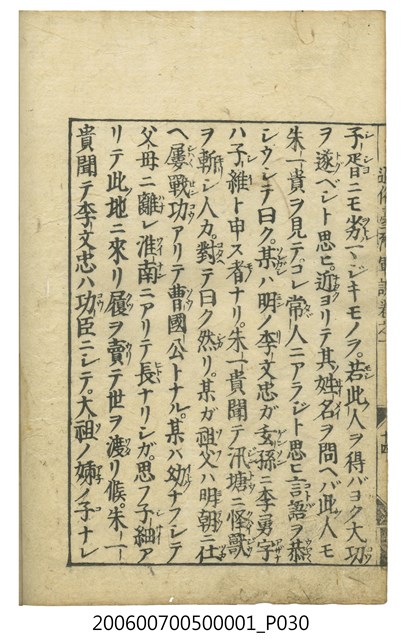 子胥ニモ劣ヘジキモノヲ。若此人ヲ得バヨク大功
ヲ遂ベシト思ヒ。近ヨリテ其姓名ヲ問ヘバ此人モ
朱一貴ヲ見テ。コレ常人ニアラジト思ヒ言語ヲ恭
シウシテ曰ク。某ハ明ノ李文忠ガ玄孫ニ李勇字
ハ子維ト申ス者ナリ。朱一貴聞テ汛塘ニ怪獸
ヲ斬シ人カ。對テ曰ク然リ。某ガ祖父ハ明朝ニ仕
ヘ屢戰功アリテ曹國公トナル。某ハ幼ナフシテ
父母ニ離レ淮南ニアリテ長ナリシガ。思フ子細ア
リテ此地ニ來リ履ヲ賣テ世ヲ渡リ候。朱一
貴聞テ李文忠ハ功臣ニシテ。大祖ノ姉ノ子ナレ
十四
200600700500001_P030